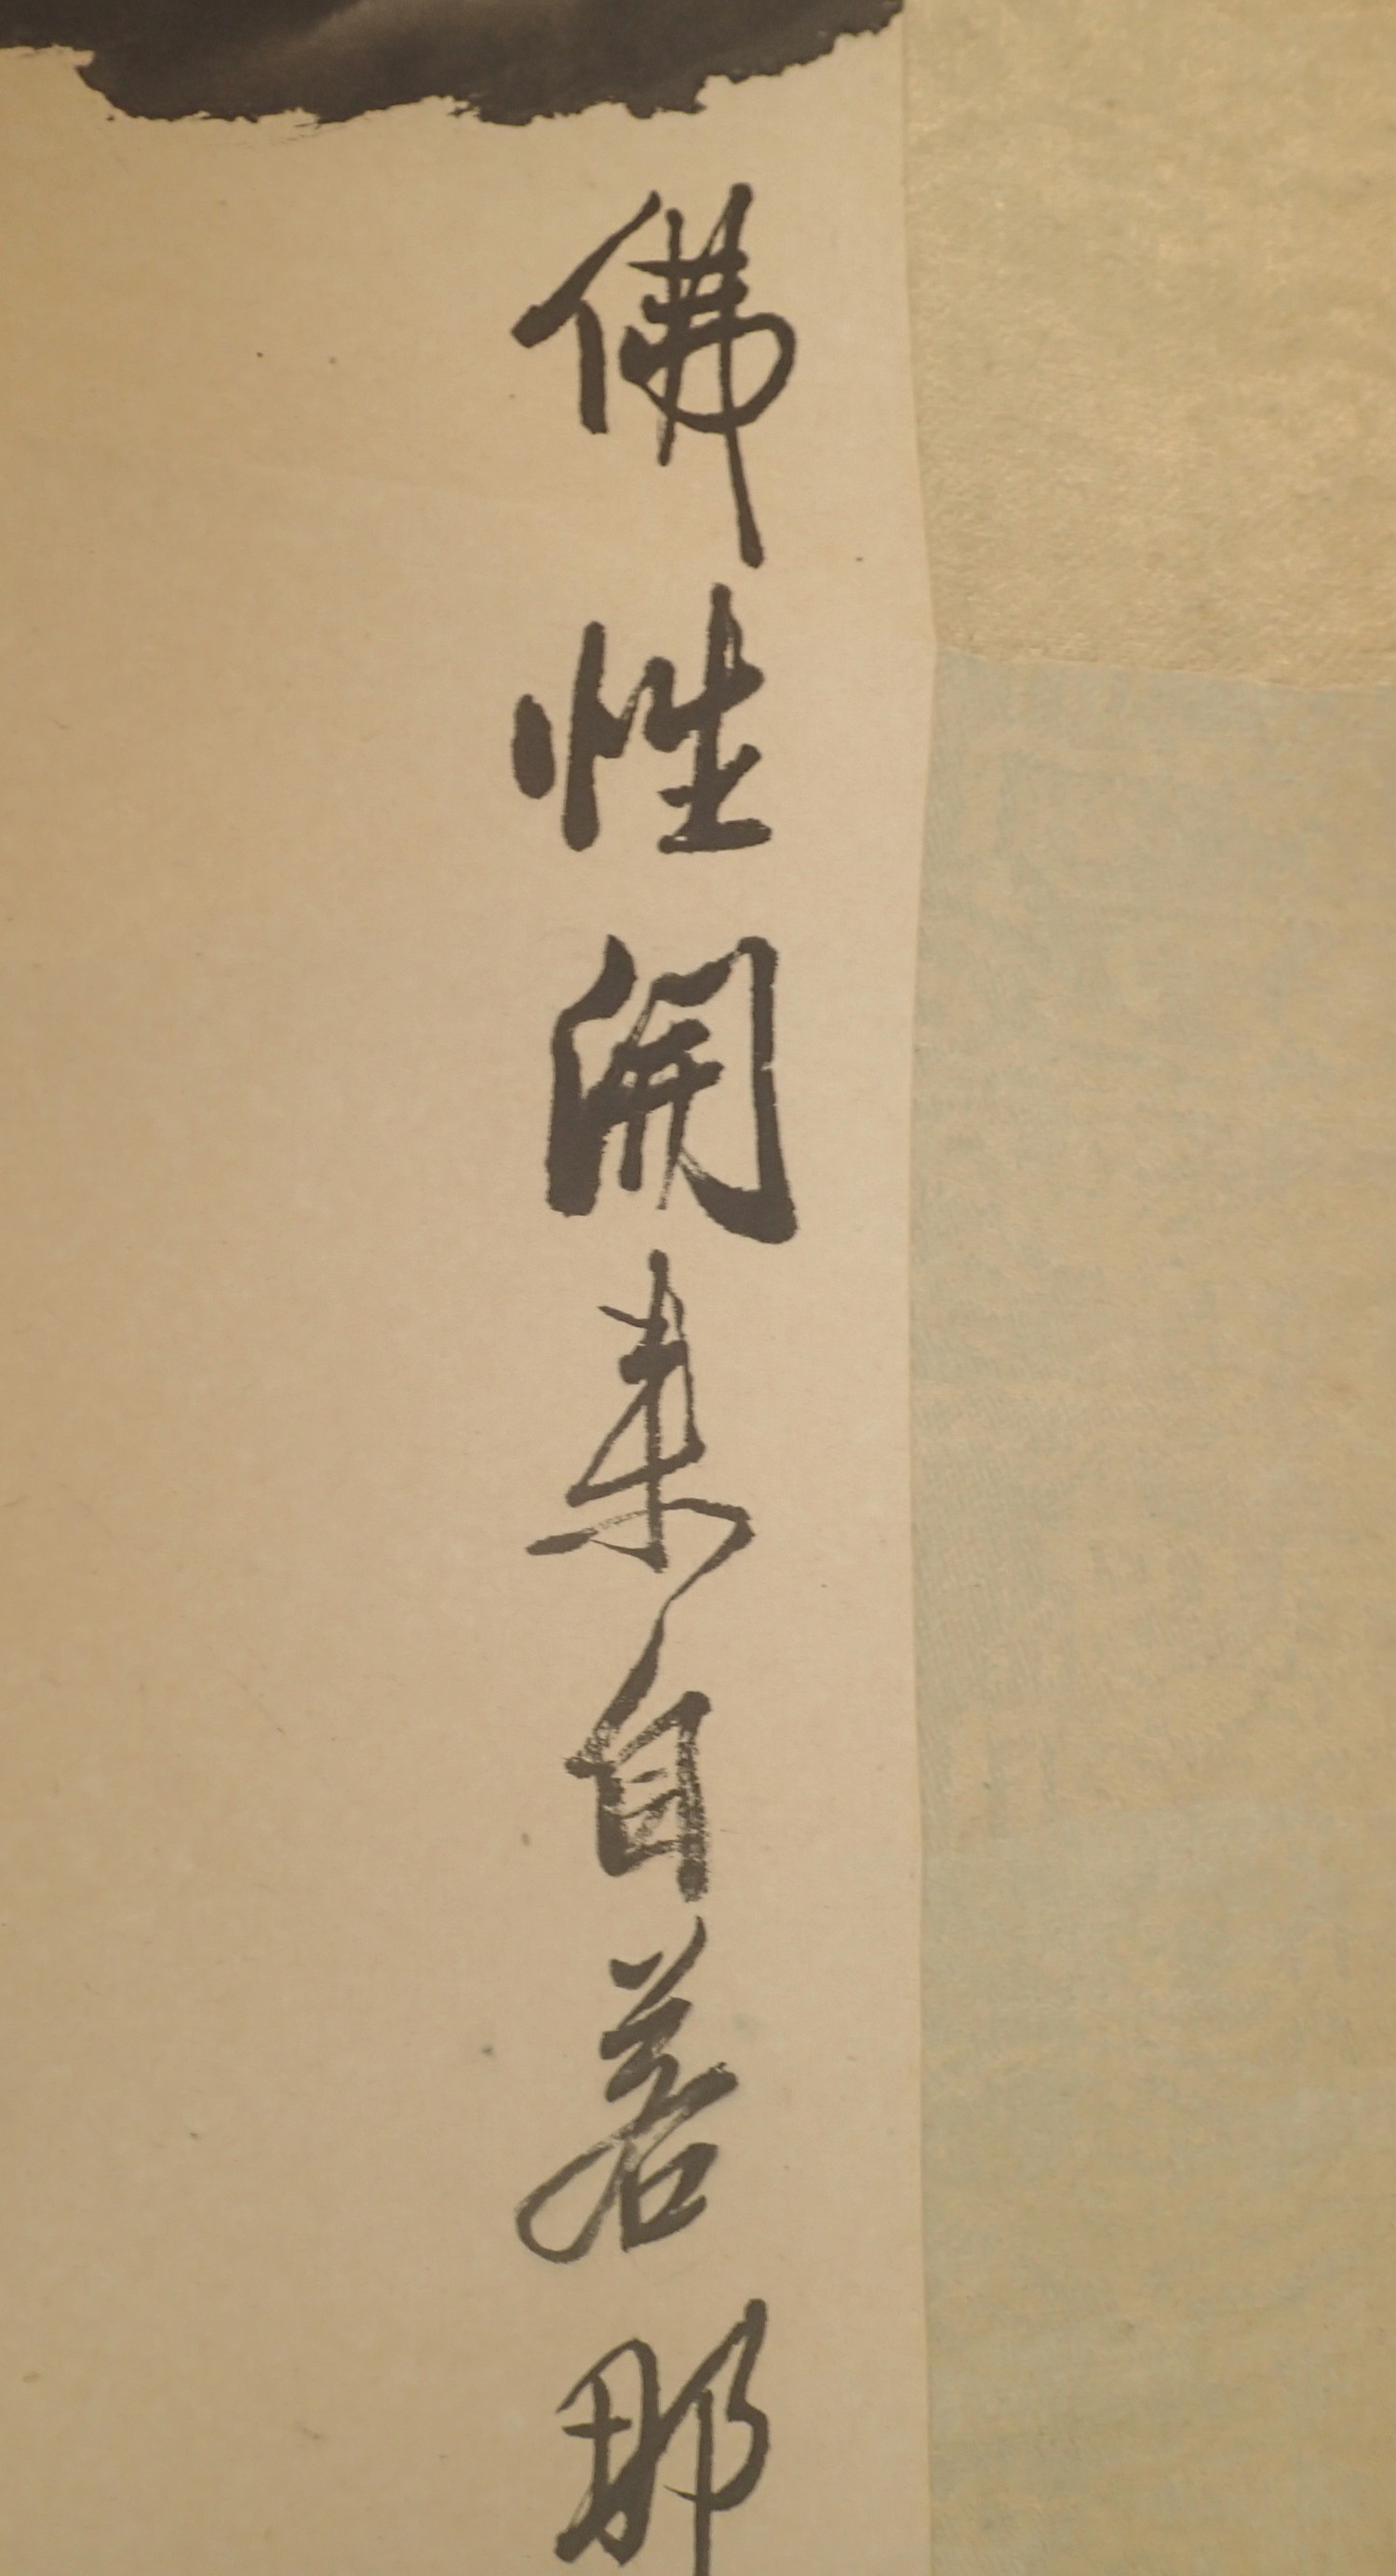 佛性開來自若那